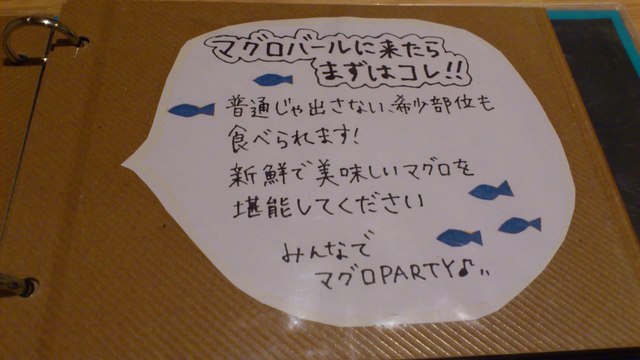 マグロバールに来たら
まずはコレ!!
普通じゃ出さない、希少部位も
食べられます!
新鮮で美味しいマグロを
堪能してください
みんなで
マグロPARTY♪